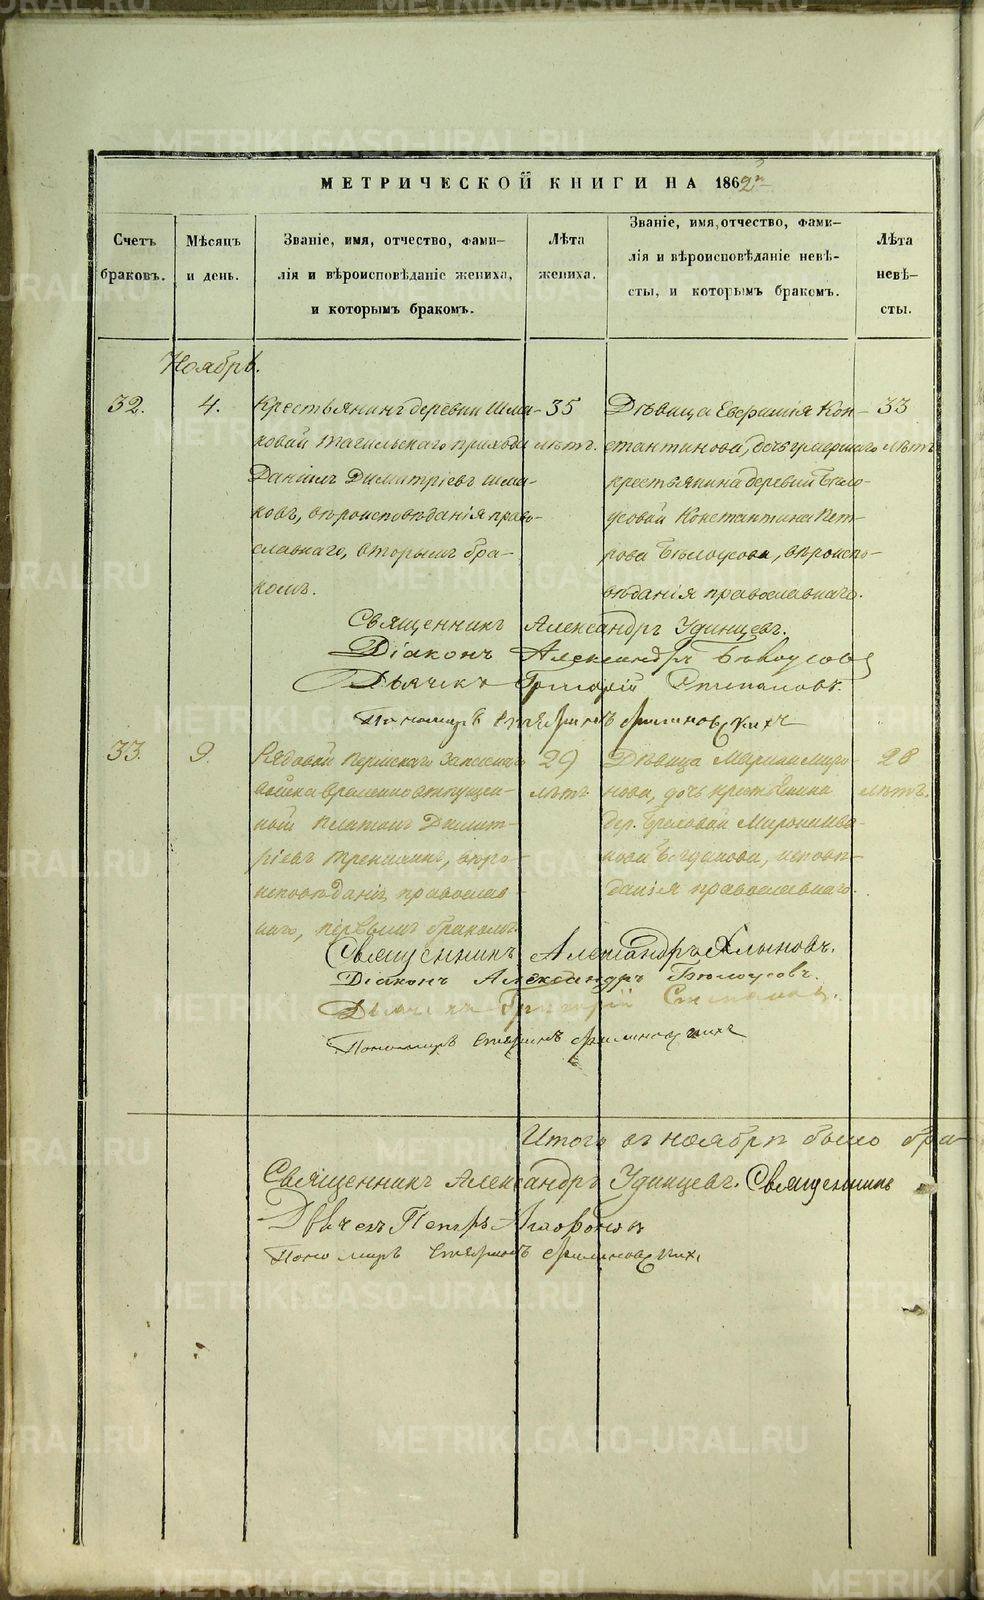 МЕТРИЧЕСКОЙ КНИГИ НА 1862й
Счетъ браковъ.
Мѣсяцъ и день.
Званіе, имя, отчество, фами-
лія и вѣроисповѣданіе жениха,
и которымъ бракомъ.
Лѣта жениха.
Званіе, имя, отчество, фами-
лія и вѣроисповѣданіе невѣ-
сты, и которымъ бракомъ.
Лѣта
невѣ-
сты.
Ноябрь.
32.
4.
Крестьянинъ деревни Шма-
ковой Тагильскаго прихода
Даніилъ Димитріевъ Шма-
ковъ, вѣроисповѣданія право-
славнаго, вторымъ бра-
комъ.
35
лѣтъ.
Дѣвица Евфимія Кон-
стантинова, дочь умершаго
крестьянина деревни Бѣло-
усовой Константина Пет-
рова Бѣлоусова, вѣроиспо-
вѣданія православнаго.
33
лѣтъ
Священникъ Александръ Удинцевъ.
Діаконъ Александръ Бѣлоусовъ
Дьячекъ Григорій Степановъ.
Пономарь
33.
9.
Рядовой Пермскаго запаснаго
временно отпущен-
ной Платонъ Димит-
ріевъ вѣро-
исповѣданія православ-
наго, первымъ бракомъ.
29
лѣтъ
Дѣвица Маріанна Миро-
нова, дочь крестьянина
дер. Мирона Ива-
нова Богданова, исповѣ-
данія православнаго.
28
лѣтъ.
Священникъ Александръ Хлыновъ.
Діаконъ Александръ Бѣлоусовъ.
Дьячекъ Григорій Степановъ.
Пономарь
Итого въ ноябрѣ было бра-
Священникъ Александръ Удинцевъ. Священникъ
Дьячекъ Петръ
Пономарь
METRIKI.GASO-URAL.RU